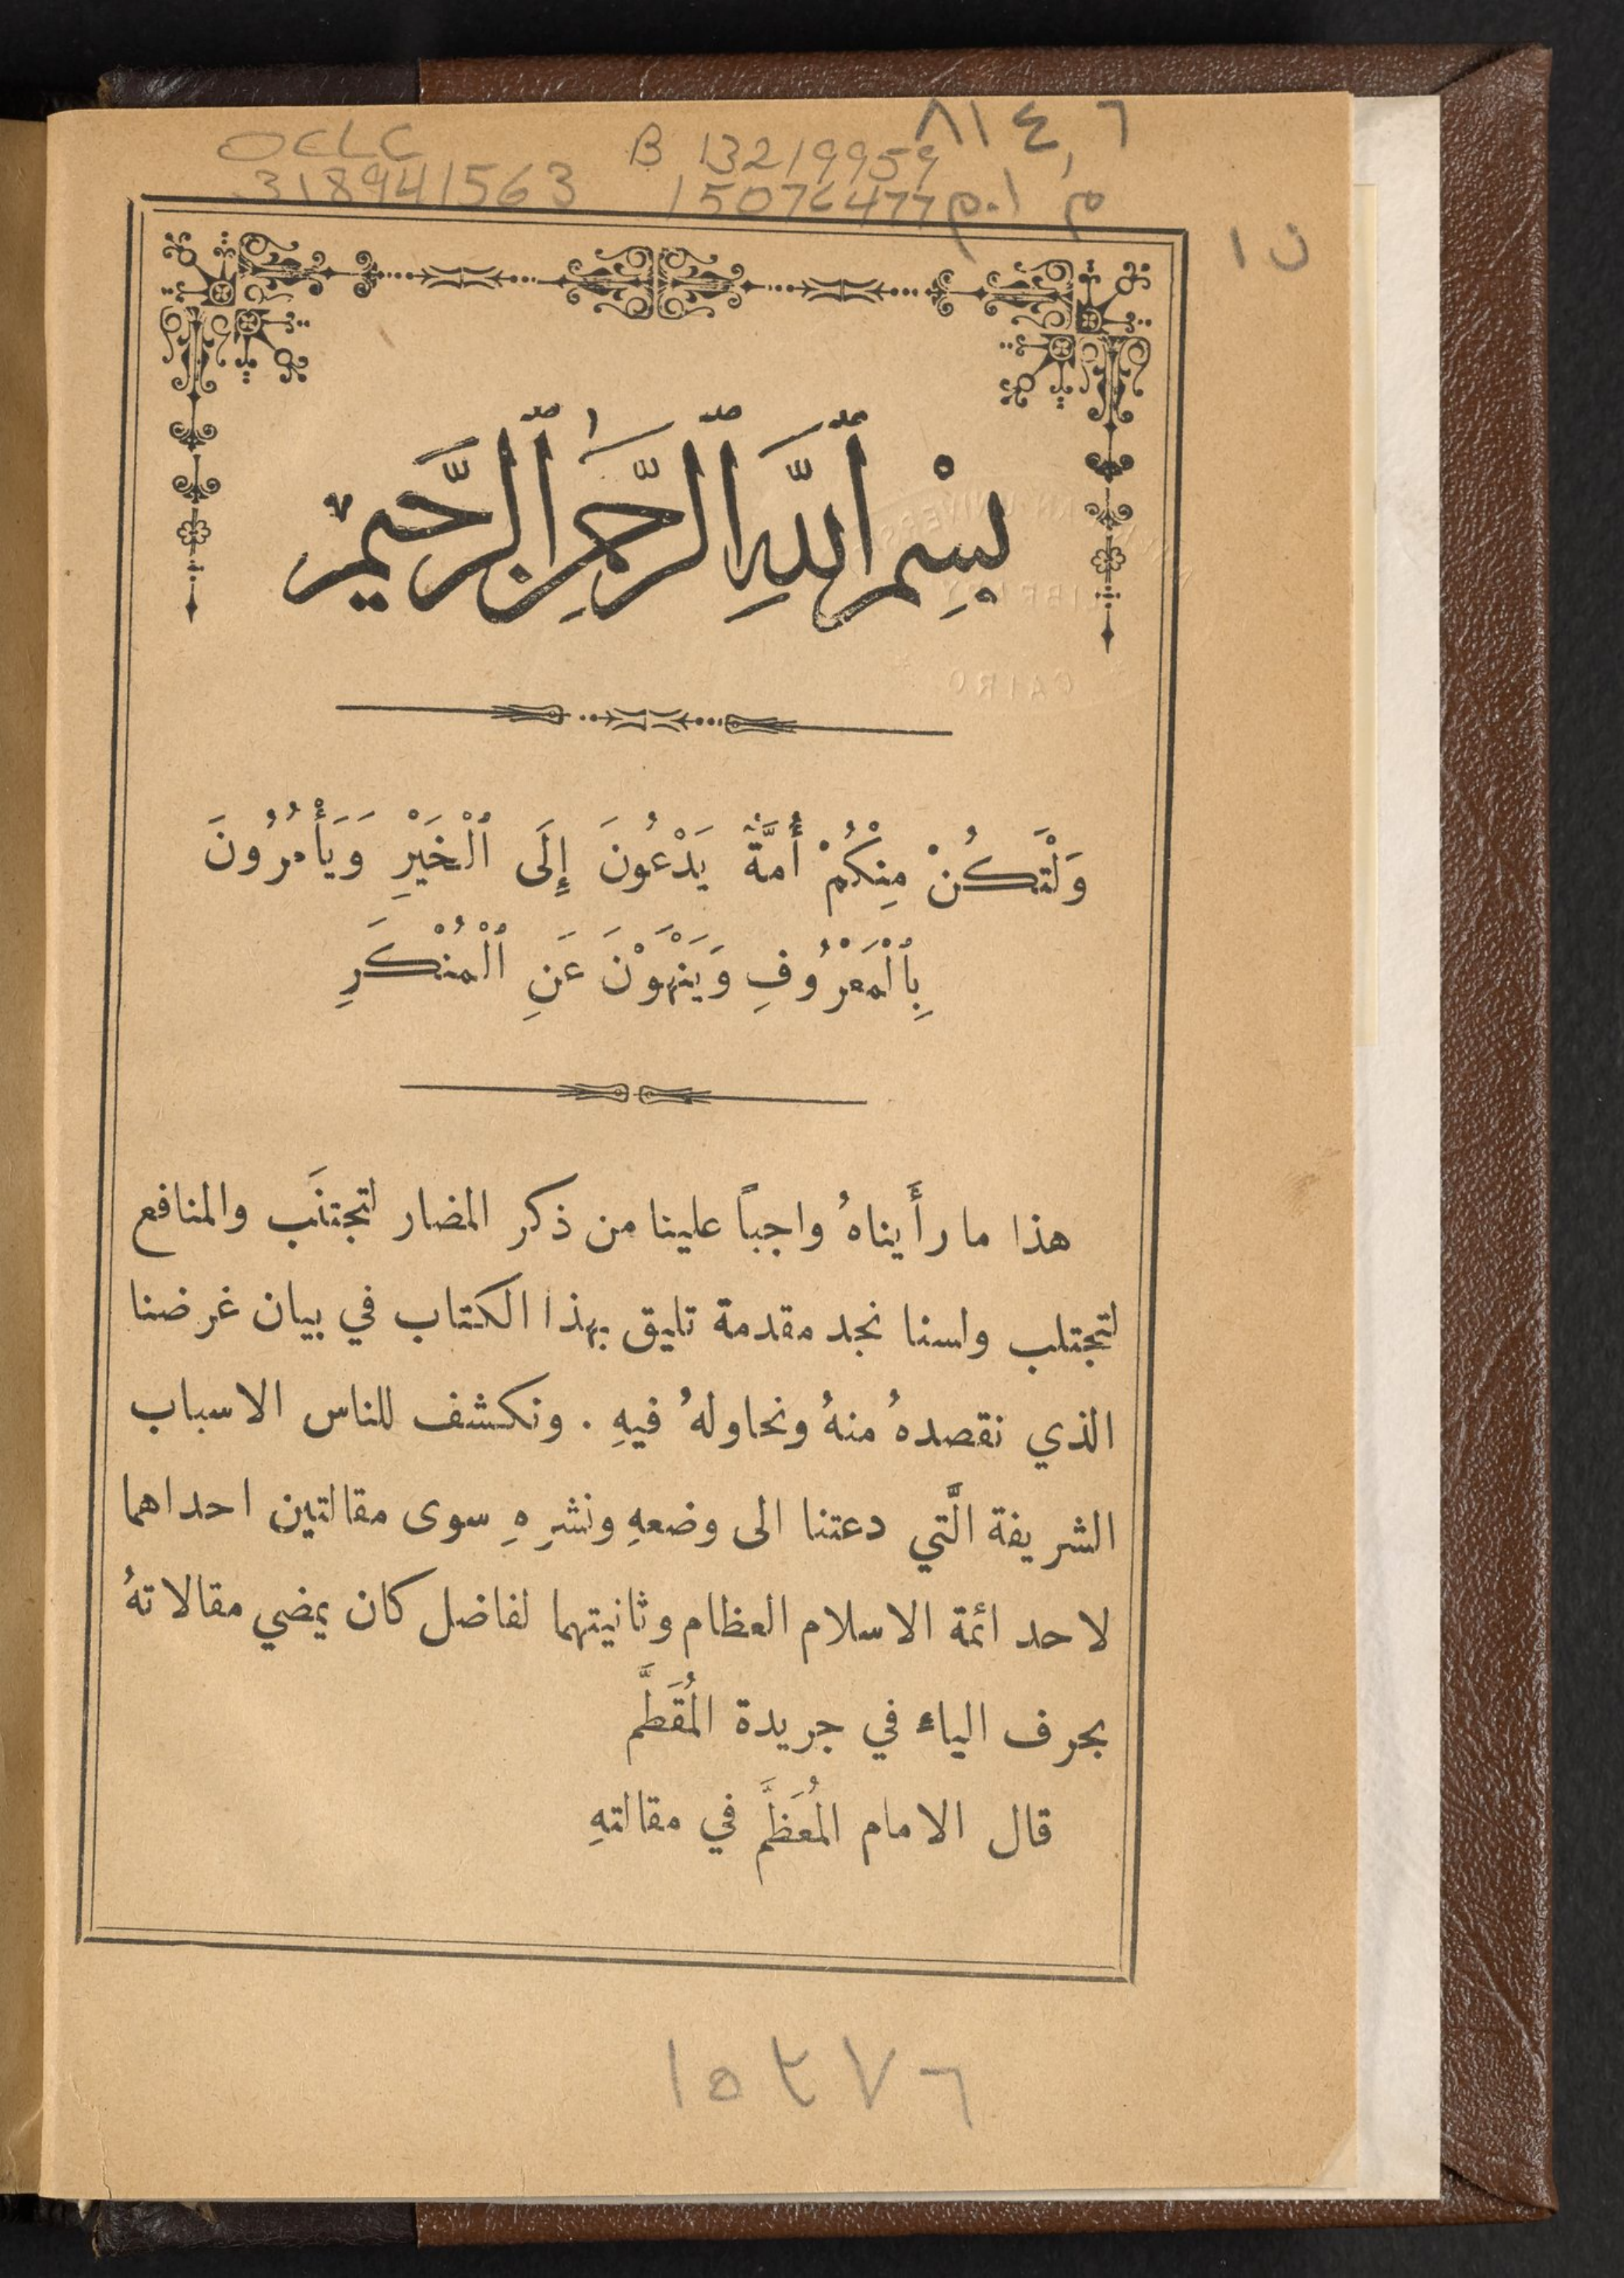 ٨١٤,٦
OCLC B 13219959
318941563 15076477 م.ا م
ن ١
بِسْمِ ٱللَّهِ ٱلرَّحْمَٰنِ ٱلرَّحِيمِ
وَلْتَكُنْ مِنْكُمْ أُمَّةٌ يَدْعُونَ إِلَى ٱلْخَيْرِ وَيَأْمُرُونَ
بِٱلْمَعْرُوفِ وَيَنْهَوْنَ عَنِ ٱلْمُنْكَرِ
هذا ما رأَيناهُ واجباً علينا من ذكر المضار لتجتنَب والمنافع
لتجتلب ولسنا نجد مقدمة تليق بهذا الكتاب في بيان غرضنا
الذي نقصدهُ منهُ ونحاولهُ فيهِ . ونكشف للناس الاسباب
الشريفة الَّتي دعتنا الى وضعهِ ونشرِهِ سوى مقالتين احداهما
لاحد ائمة الاسلام العظام وثانيتهما لفاضل كان يمضي مقالاتهُ
بحرف الياء في جريدة المُقَطَّم
قال الامام المُعَظَّم في مقالتهِ
LIBRARY
CAIRO
١٥٢٧٦